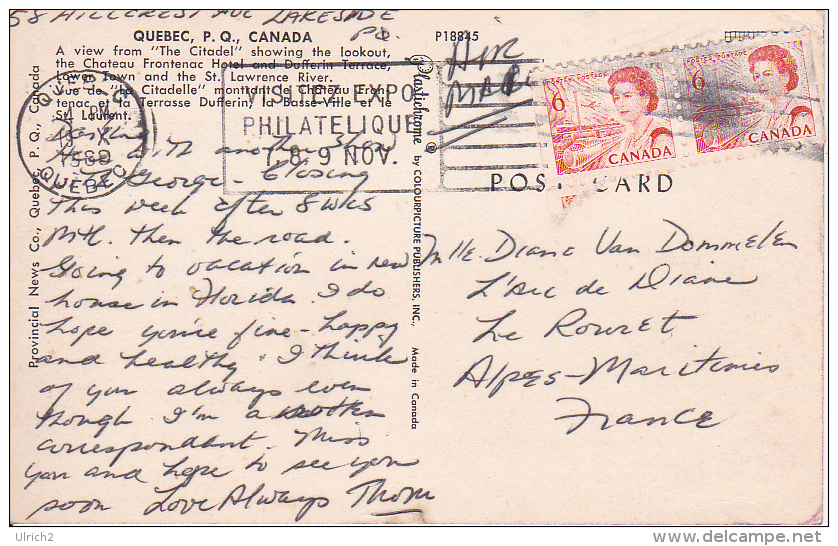 58 HILLCREST AVE LAKESIDE
P.Q.
QUEBEC, P. Q., CANADA
A view from "The Citadel" showing the lookout,
the Chateau Frontenac Hotel and Dufferin Terrace,
Lower Town and the St. Lawrence River.
Vue de "La Citadelle" montrant le Château Fron-
tenac et la Terrasse Dufferin, la Basse-Ville et le
St. Laurent.
P18845
AIR
MAIL
QUEBEC
PM
X
QUEBEC
VISITEZ EXPO
PHILATELIQUE
7-8-9 NOV.
6
POSTES POSTAGE
CANADA
6
CANADA
POST CARD
Working
here with another show
George - Closing
this week after 8 wks
Mtl. then the road.
Going to vacation in new
house in Florida. I do
hope you're fine - happy
and healthy. I think
of you always even
though I'm a rotten
correspondent. Miss
you and hope to see you
soon Love Always Thom
Mlle. Diana Van Dommelen
L'Arc de Diane
Le Rouret
Alpes-Maritimes
France
Provincial News Co., Quebec, P. Q., Canada
Plastichrome ® by COLOURPICTURE PUBLISHERS, INC., Made in Canada
Ulrich2
www.delcampe.net